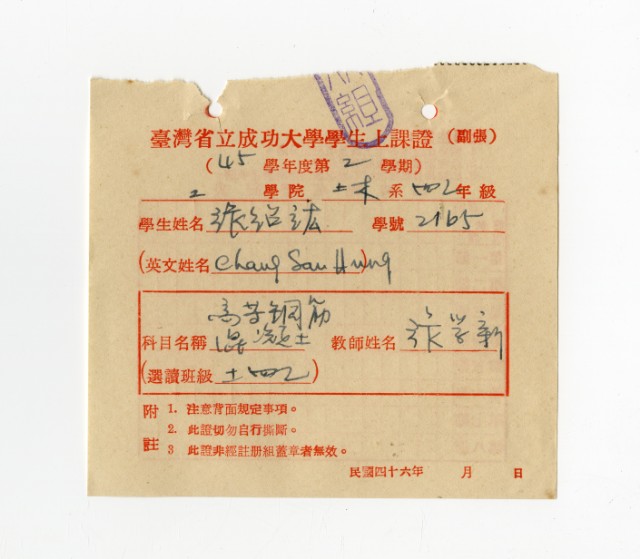 組
臺灣省立成功大學學生上課證 (副張)
( 45 學年度第 2 學期)
學院 土木 系 四 年級
學生姓名 張紹 學號 2165
(英文姓名 Chang Sau Hung)
高等鋼筋
科目名稱 混凝土 教師姓名 張学新
(選讀班級 土四 )
附註
1. 注意背面規定事項。
2. 此證切勿自行撕斷。
3 此證非經註册組蓋章者無效。
民國四十六年 月 日